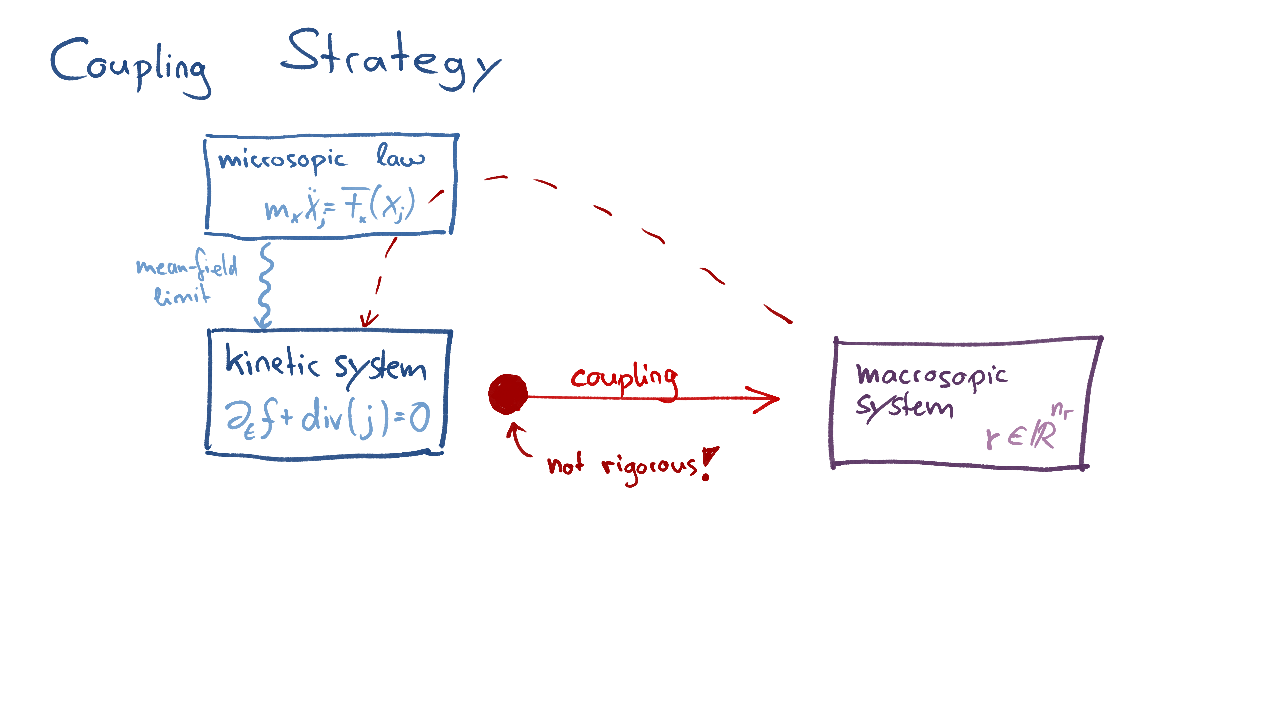 Coupling Strategy
microsopic law
mₓẍⱼ = Fₓ(xⱼ)
mean-field
limit
kinetic system
∂ₜf + div(j) = 0
coupling
not rigorous!
macrosopic
system
r ∈ ℝ^{n_r}